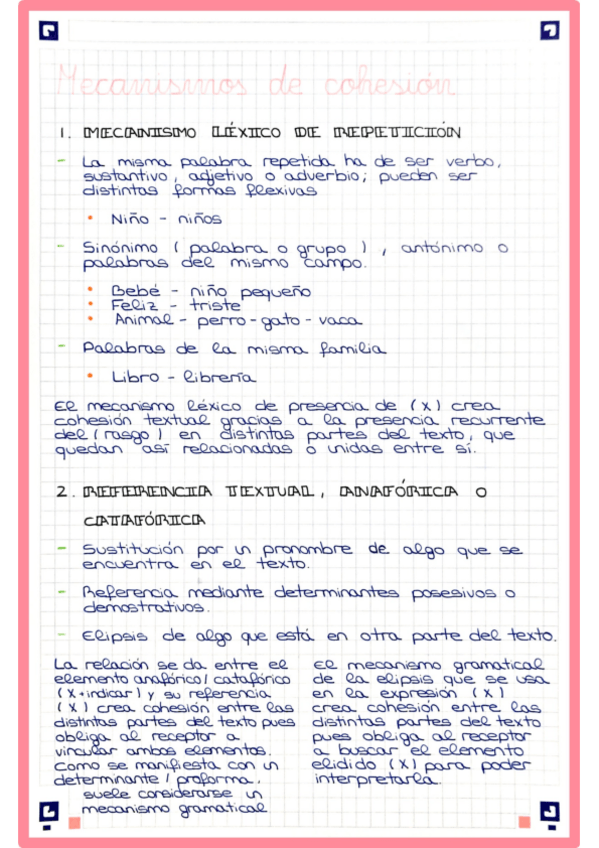 Mecanismos de cohesión
1. MECANISMO LÉXICO DE REPETICIÓN
- La misma palabra repetida ha de ser verbo,
sustantivo, adjetivo o adverbio; pueden ser
distintas formas flexivas
• Niño - niños
- Sinónimo ( palabra o grupo ) , antónimo o
palabras del mismo campo.
• Bebé - niño pequeño
• Feliz - triste
• Animal - perro - gato - vaca
- Palabras de la misma familia
• Libro - librería
El mecanismo léxico de presencia de ( x ) crea
cohesión textual gracias a la presencia recurrente
del ( rasgo ) en distintas partes del texto, que
quedan así relacionadas o unidas entre sí.
2. REFERENCIA TEXTUAL, ANAFÓRICA O
CATAFÓRICA
- Sustitución por un pronombre de algo que se
encuentra en el texto.
- Referencia mediante determinantes posesivos o
demostrativos.
- Elipsis de algo que está en otra parte del texto.
La relación se da entre el
elemento anafórico / catafórico
( x + indicar ) y su referencia
( x ) crea cohesión entre las
distintas partes del texto pues
obliga al receptor a
vincular ambos elementos.
Como se manifiesta con un
determinante / proforma,
suele considerarse un
mecanismo gramatical
El mecanismo gramatical
de la elipsis que se usa
en la expresión ( x )
crea cohesión entre las
distintas partes del texto
pues obliga al receptor
a buscar el elemento
elidido ( x ) para poder
interpretarla.